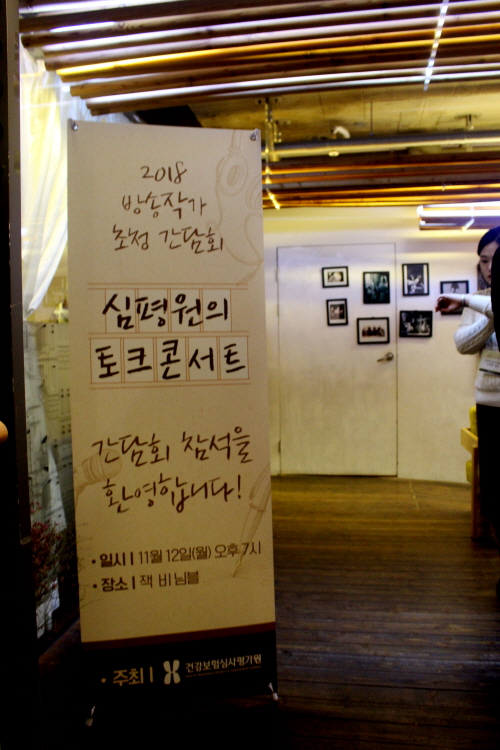 2018
방송작가
초청 간담회
심평원의
토크콘서트
간담회 참석을
환영합니다!
• 일시 | 11월 12일(월) 오후 7시
• 장소 | 잭 비 님블
• 주최 | 건강보험심사평가원